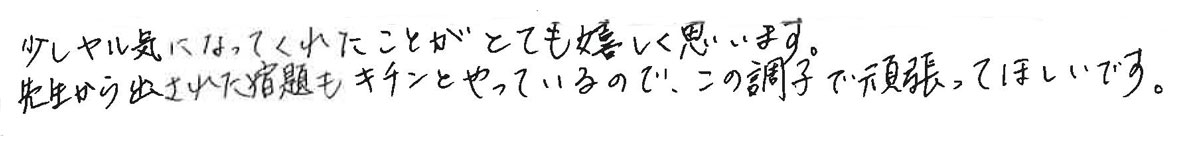 少しヤル気になってくれたことがとても嬉しく思います。
先生から出された宿題もキチンとやっているので、この調子で頑張ってほしいです。